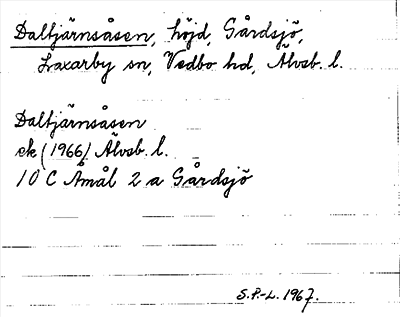 Daltjärnsåsen, höjd, Gårdsjö,
Laxarby sn, Vedbo hd, Älvsb. l.
Daltjärnsåsen
ek (1966) Älvsb. l.
10 C Åmål 2 a Gårdsjö
S.P.-L. 1967.